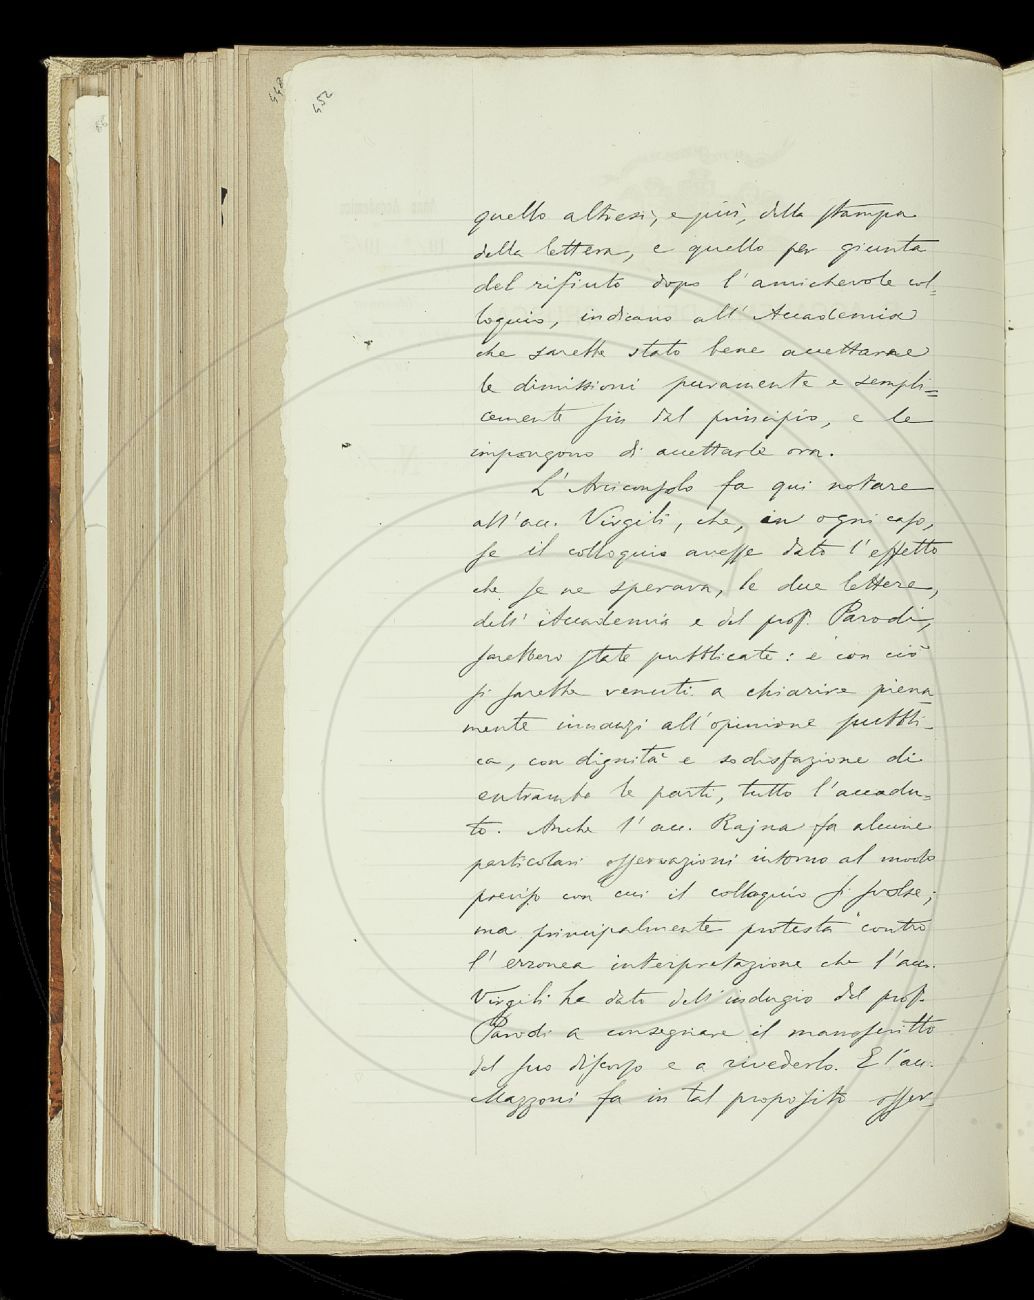 448
452
quello altresì, e più, della stampa
della lettera, e quello per giunta
del rifiuto dopo l'amichevole col=
loquio, indicano all'Accademia
che sarebbe stato bene accettarne
le dimissioni puramente e sempli=
cemente fin dal principio, e le
impongono di accettarle ora.
L'Arciconsolo fa qui notare
all'acc. Virgili, che, in ogni caso,
se il colloquio avesse dato l'effetto
che se ne sperava, le due lettere,
dell'Accademia e del prof. Parodi,
sarebbero state pubblicate: e con ciò
si sarebbe venuti a chiarire piena
mente innanzi all'opinione pubbli-
ca, con dignità e sodisfazione di
entrambe le parti, tutto l'accadu=
to. Anche l'acc. Rajna fa alcune
particolari osservazioni intorno al modo
preciso con cui il colloquio si svolse;
ma principalmente protesta contro
l'erronea interpretazione che l'acc.
Virgili ha dato dell'indugio del prof.
Parodi a consegnare il manoscritto
del suo discorso e a rivederlo. E l'acc.
Mazzoni fa in tal proposito osser-